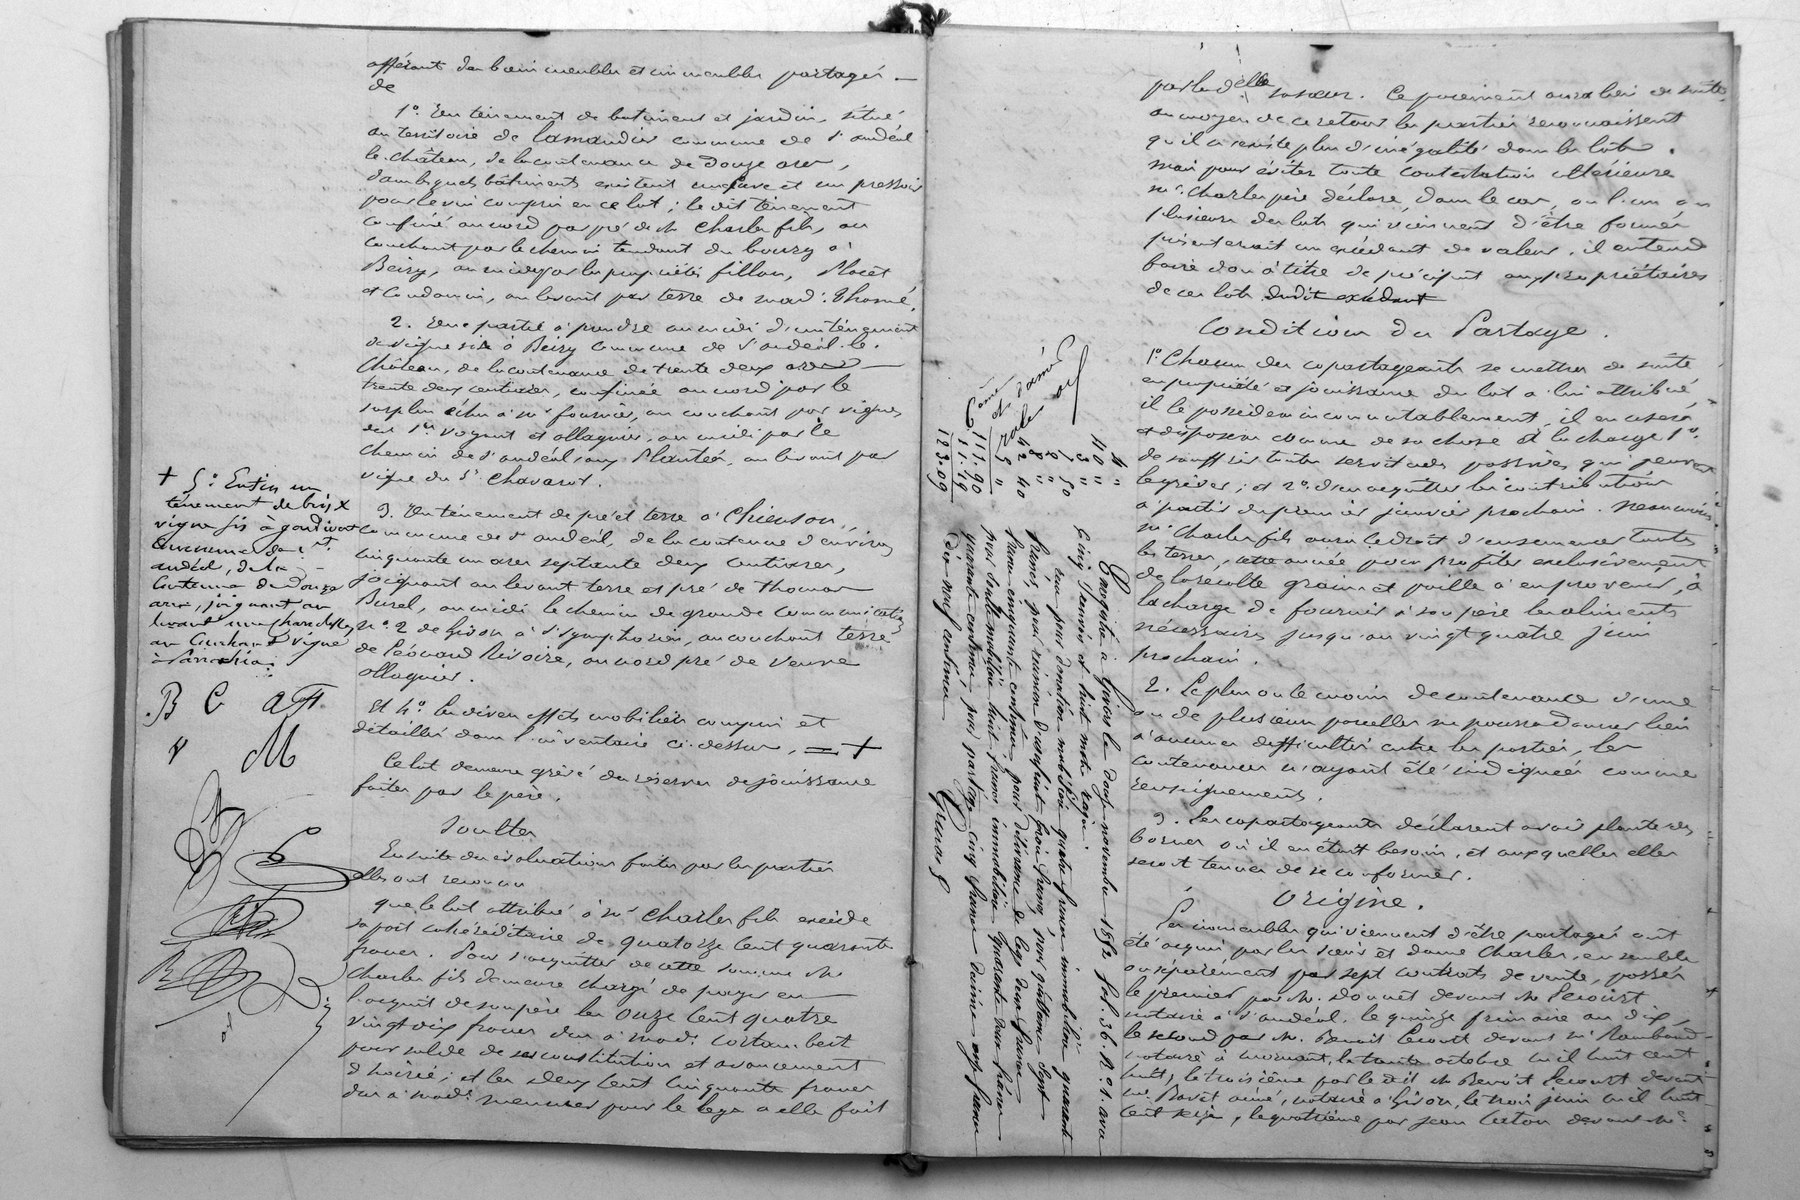 afférant des biens meubles et immeubles partagés —
de
1° Un tènement de batiment et jardin, situé
au territoire de Lamandier commune de St andéol
le-château, de la contenance de douze ares,
dans lesquels bâtiments existent une cave et un pressoir
pour le vin compris en ce lot ; le dit tènement
confiné au nord par pré de M Charles fils, au
couchant par le chemin tendant du bourg à
Beizy, au midi par les propriétés fillon,
et Condamin, au levant par terre de mad. Thomé,
2. Une partie à prendre au midi d'un tènement
de vigne sis à Beizy commune de St andéol-le-
Château, de la contenance de trente deux ares —
trente deux centiares, confinée au nord par le
surplus échu à mr fournier, au couchant par vignes
des Srs voyant et ollagnier, au midi par le
chemin de St andéol aux Plantées, au levant par
vigne du Sr Chavarot.
3. Un tènement de pré et terre à Chienson,
commune de St andéol, de la contenue d'environ
cinquante un ares septante deux centiares,
joignant au levant terre et pré de Thomas
Burel, au midi le chemin de grande communication
n° 2 de Givors à St Symphorien, au couchant terre
de Léonard Rivoire, au nord pré de veuve
ollagnier.
Et 4° les divers effets mobiliers compris et
détaillés dans l'inventaire ci-dessus, = +
Ce lot demeure grévé des réserves de jouissance
faites par le père.
Soultes
Ensuite des évaluations faites par les parties
elles ont reconnu
que le lot attribué à mr Charles fils excède
sa part cohéréditaire de quatorze cent quarante
francs. Pour s'acquitter de cette somme M
Charles fils demeure chargé de payer en
l'acquit de son père les onze cent quatre
vingt dix francs dus à mad.
pour solde de ses constitution et avancement
d'hoirie ; et les deux cent cinquante francs
dus à made meunier pour le legs a elle fait
+ 5° Enfin un
tènement de
vigne sis à goudivert
Commune de St
andéol, de la
Contenue de Douze
ares, joignant au
levant
au Couchant vigne
B C
v M
par la delle sa sœur. Ce paiement aura lieu de suite.
au moyen de ce retour les parties reconnaissent
qu'il n'existe plus d'inégalité dans les lots.
mais pour éviter toute contestation ultérieure
mr. Charles père déclare, dans le cas, où l'un ou
plusieurs des lots qui viennent d'être formés
présenterait un excédant de valeur, il entend
faire don à titre de préciput aux propriétaires
de ces lots dudit excédant
Conditions du Partage.
1° Chacun des copartageants se mettra de suite
en propriété et jouissance du lot à lui attribué,
il le possèdera incommutablement, il en usera
et disposera comme de sa chose à la charge 1°
de souffrir toutes servitudes passives qui peuvent
le grever ; et 2° d'en acquitter les contributions
à partir du premier janvier prochain. Néanmoins
mr Charles fils aura le droit d'ensemencer toutes
les terres, cette année pour profiter exclusivement
de la récolte grains et paille à en provenir, à
la charge de fournir à son père les aliments
nécessaires jusqu'au vingt quatre juin
prochain.
2. Le plus ou le moins de contenance d'une
ou de plusieurs parcelles ne pourra donner lieu
à aucunes difficultés entre les parties, les
contenances n'ayant été indiquées comme
renseignements.
3. Les copartageants déclarent avoir planté des
bornes où il en était besoin, et auxquelles elles
seront tenues de se conformer.
Origine.
Les immeubles qui viennent d'être partagés ont
été acquis par les sieurs et dame Charles, ensemble
ou séparément par sept contrats de vente, passés
le premier par M. Donnet devant M Lecourt
notaire à St andéol, le quinze frimaire an dix,
le second par M. Benoit Lecourt devant mr Rambaud
notaire à mornant, le trente octobre mil huit cent
huit, le troisième par le dit M Benoit Lecourt devant
mr. Bovet ainé, notaire à Givors, le trois juin mil huit
cent seize, le quatrième par Jean Celton devant Mr
Enregistré à Givors le douze novembre 1852 fol. 36. R° c. 1. avec
cinq Renvois et huit mots rayés.
reçu pour donation mobilière quatre francs immobilière quarante
francs, pour réunion d'usufruit trois francs, sept
francs cinquante centimes pour délivrance de legs deux francs
pour soulte mobilière huit francs immobilière quarante deux francs
quarante centimes, pour partage cinq francs décime onze francs
dix-neuf centimes
4 "
40 "
3 "
7 50
8 "
42 40
5 "
111. 90
11. 19
123. 09